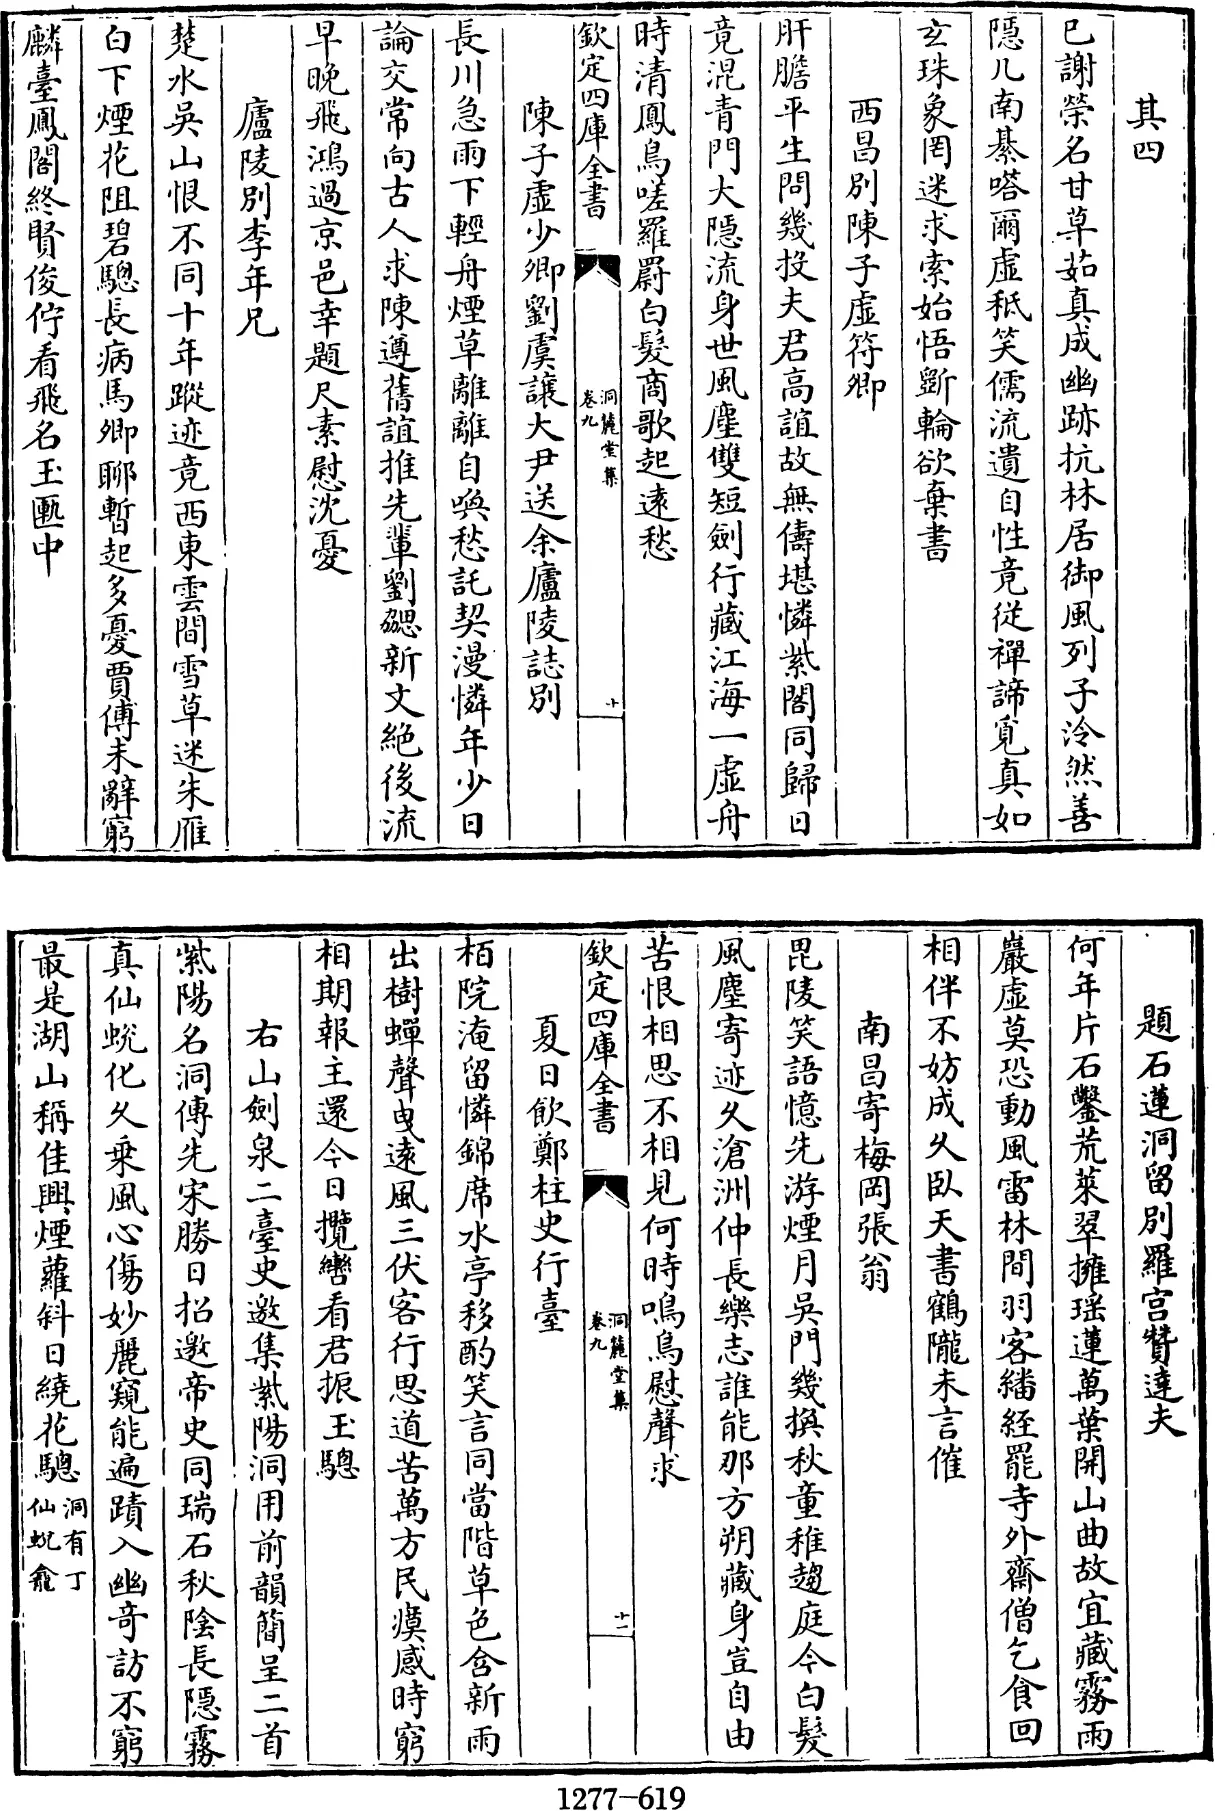 其四
已謝榮名甘草茹真成幽跡抗林居御風列子泠然善
隱几南綦嗒爾虛秖笑儒流遺自性竟從禪諦覓真如
玄珠象罔迷求索始悟斲輪欲棄書
西昌別陳子虛符卿
肝膽平生問幾投夫君高誼故無儔堪憐紫閣同歸日
竟混青門大隱流身世風塵雙短劍行藏江海一虛舟
時清鳳鳥嗟羅罻白髮商歌起遠愁
欽定四庫全書
洞麓堂集
卷九
十
陳子虛少卿劉虞讓大尹送余廬陵誌別
長川急雨下輕舟煙草離離自喚愁託契漫憐年少日
論交常向古人求陳遵舊誼推先輩劉勰新文絶後流
早晚飛鴻過京邑幸題尺素慰沈憂
廬陵別李年兄
楚水吳山恨不同十年蹤迹竟西東雲間雪草迷朱雁
白下煙花阻碧驄長病馬卿聊暫起多憂賈傅未辭窮
麟臺鳳閣終賢俊佇看飛名玉匭中
題石蓮洞留別羅宫贊達夫
何年片石鑿荒萊翠擁瑶蓮萬葉開山曲故宜藏霧雨
巖虛莫恐動風雷林間羽客繙經罷寺外齋僧乞食回
相伴不妨成久臥天書鶴隴未言催
南昌寄梅岡張翁
毘陵笑語憶先游煙月吳門幾換秋童稚趨庭今白髮
風塵寄迹久滄洲仲長樂志誰能那方朔藏身豈自由
苦恨相思不相見何時鳴鳥慰聲求
欽定四庫全書
洞麓堂集
卷九
十一
夏日飲鄭柱史行臺
栢院淹留憐錦席水亭移酌笑言同當階草色含新雨
出樹蟬聲曳遠風三伏客行思道苦萬方民瘼感時窮
相期報主還今日攬轡看君振玉驄
右山劍泉二臺史邀集紫陽洞用前韻簡呈二首
紫陽名洞傳先宋勝日招邀帝史同瑞石秋陰長隱霧
真仙蛻化久乗風心傷妙麗窺能遍蹟入幽奇訪不窮
最是湖山稱佳興煙蘿斜日繞花驄洞有丁
仙蛻龕
1277-619